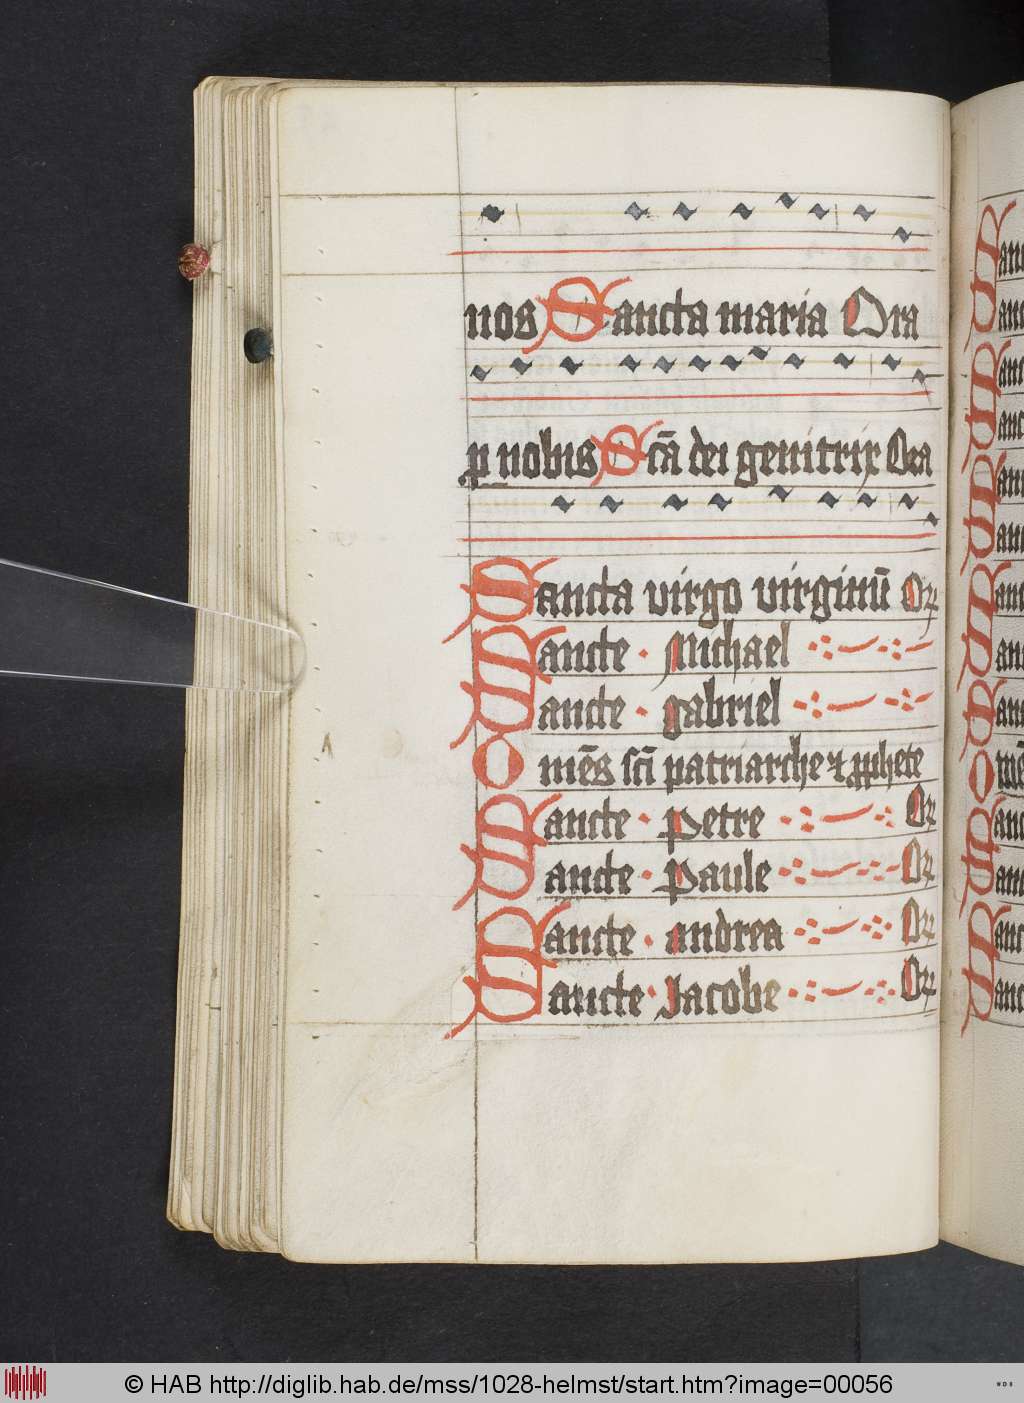 nos Sancta maria Ora
p nobis Scā dei genitrix Ora
Sancta virgo virginū Or
Sancte · Michael
Sancte · gabriel
Omēs scī patriarche et pphete
Sancte · Petre Or
Sancte · Paule Or
Sancte · andrea Or
Sancte · Jacobe Or
© HAB http://diglib.hab.de/mss/1028-helmst/start.htm?image=00056